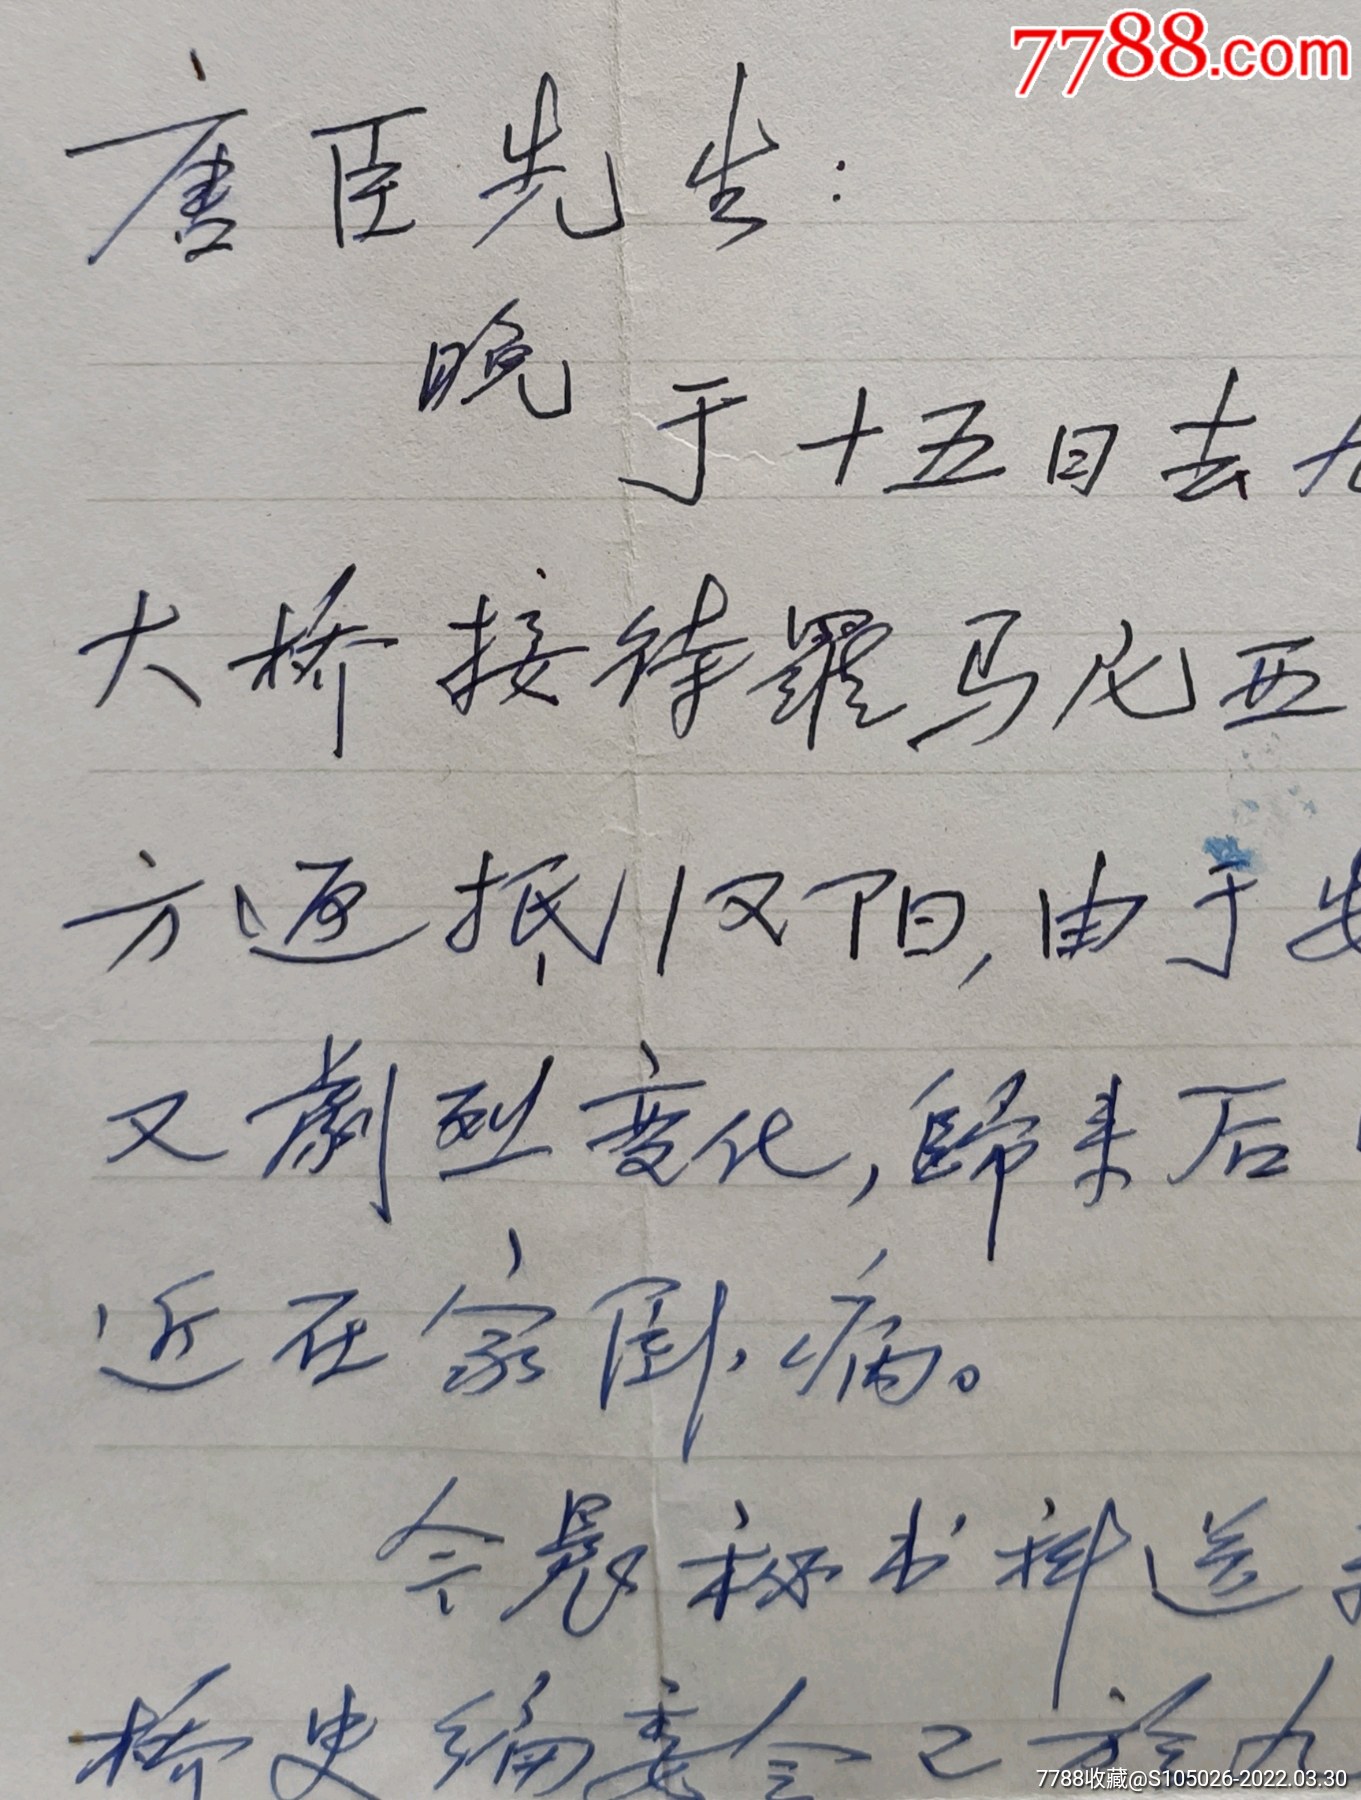 7788.com
唐臣先生:
晚于十五日去九
大桥接待罗马尼亚
方返抵汉阳,由于
又剧烈变化,歸来后
近在家卧病。
今晨秘书科送
桥史编委会已於九
7788收藏@S105026-2022.03.30